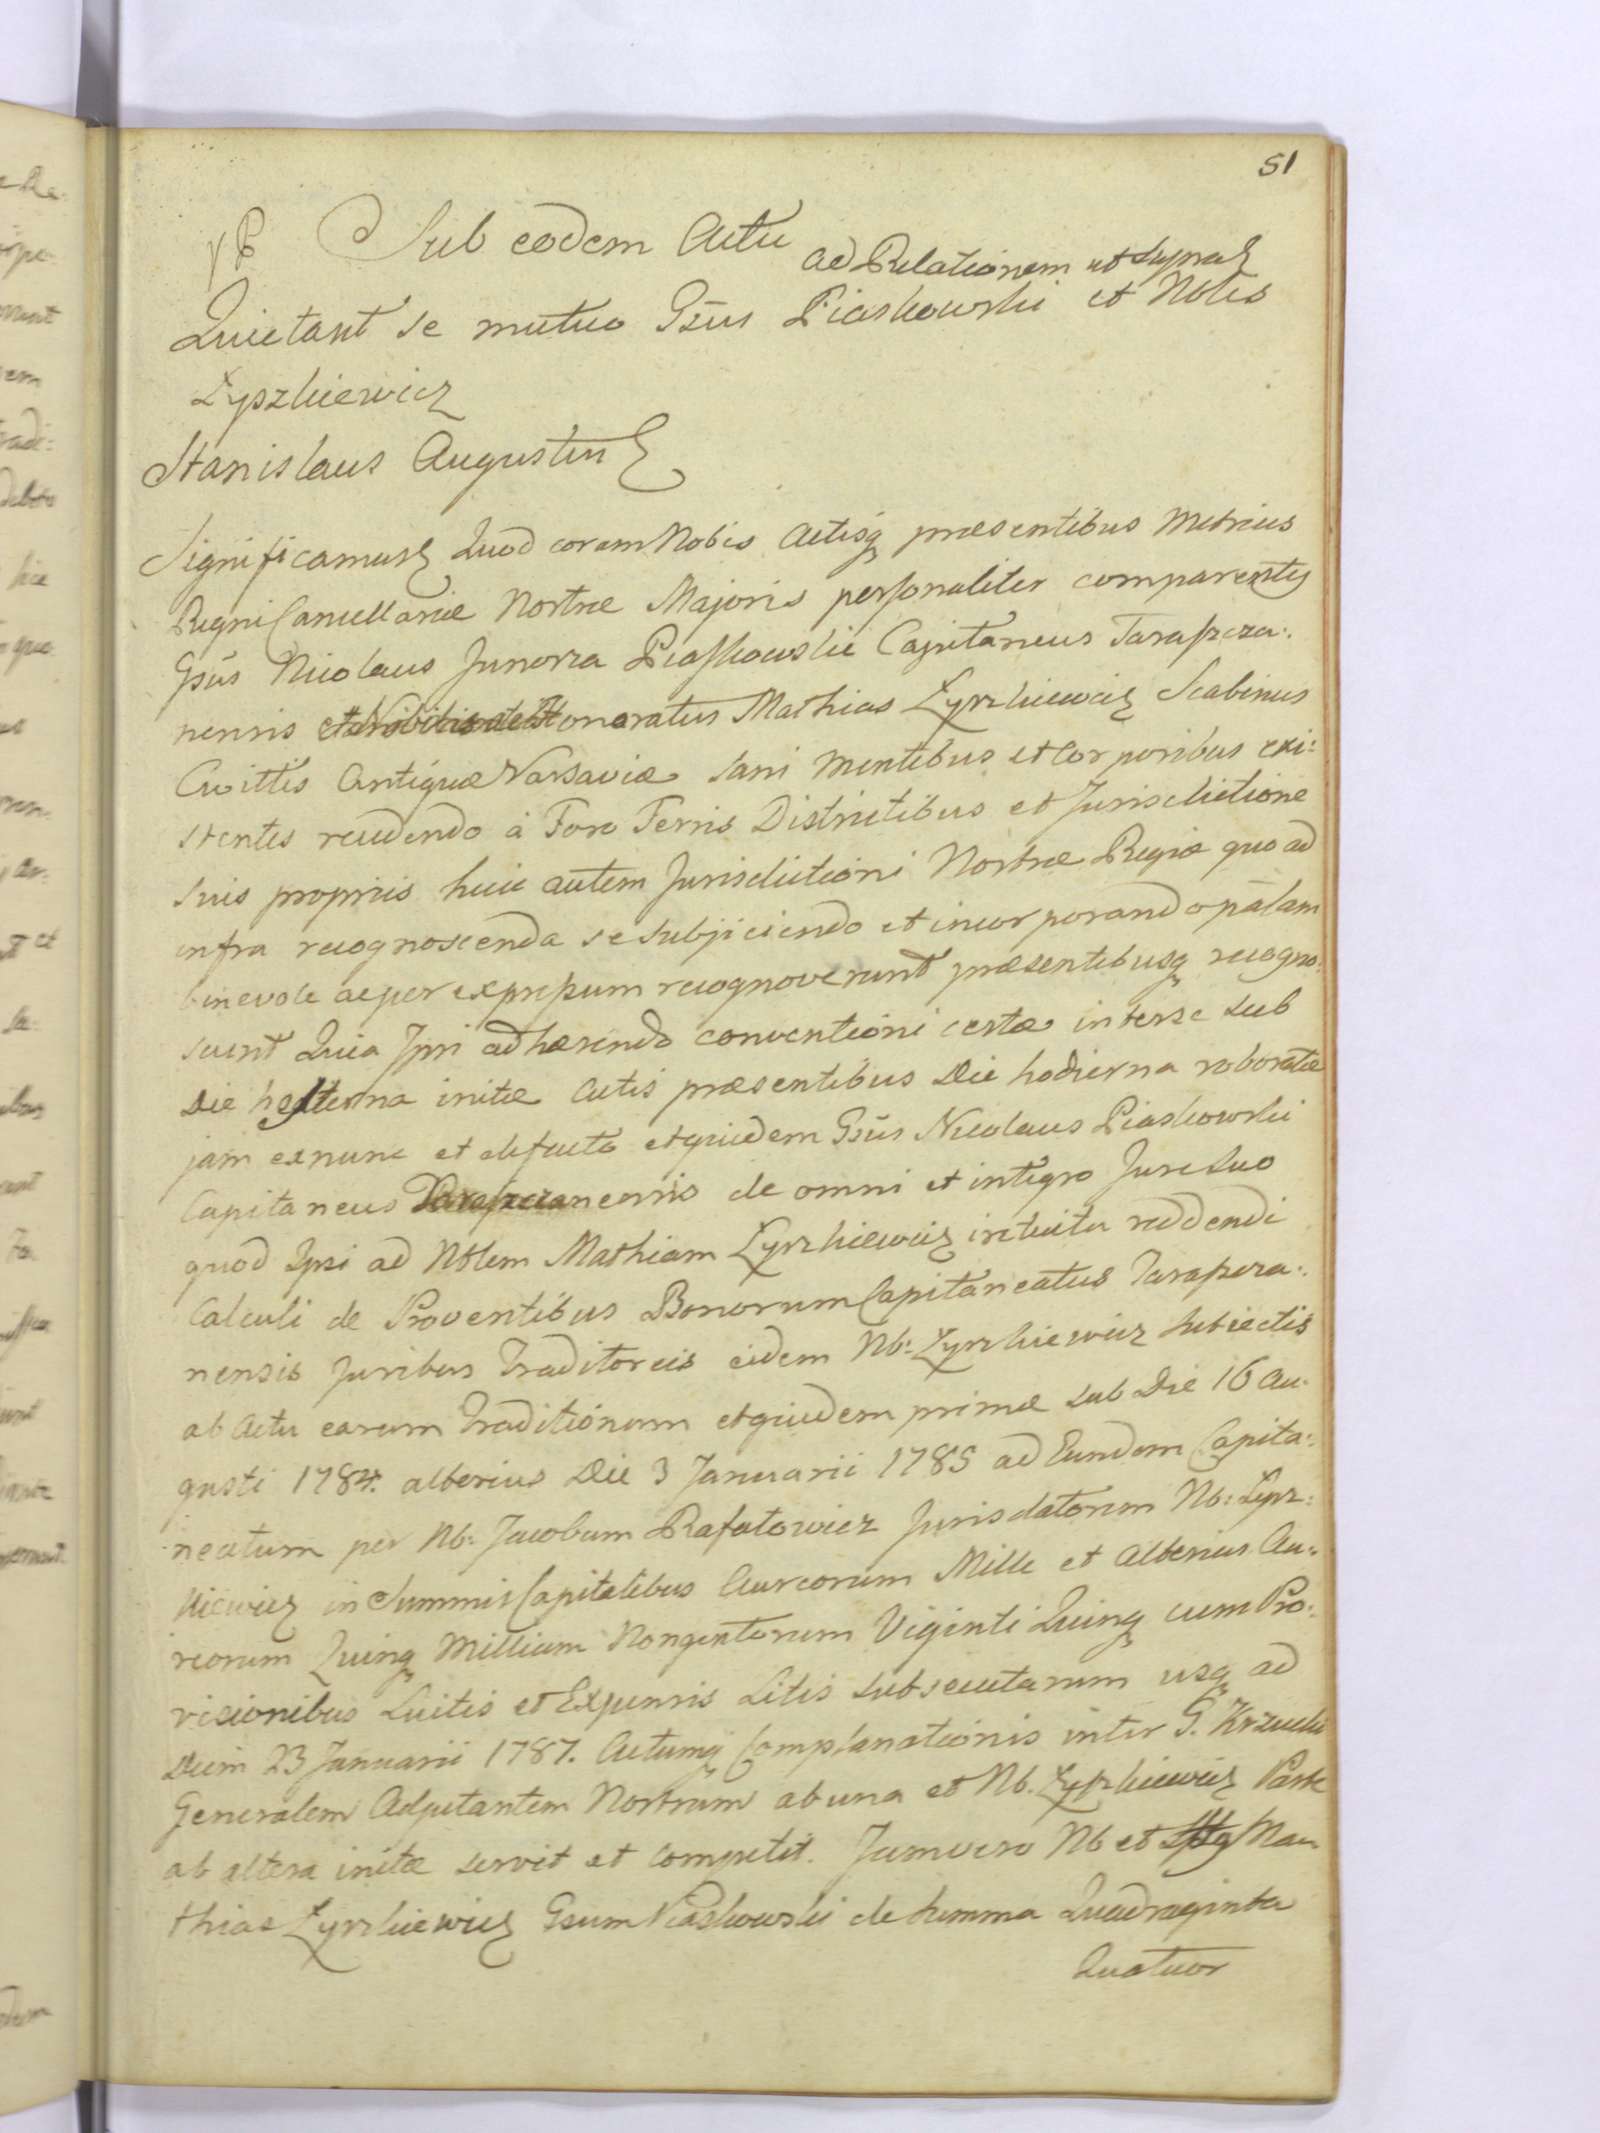 51
Sub eodem Actu
ad Relationem ut supra
Quietant se mutuo Gsus Piaskowski et Nbles
Łyszkiewicz
Stanislaus Augustus
Significamus Quod coram Nobis Actisq praesentibus Metrices
Regni Cancellariae Nostrae Majoris personaliter comparentes
Gsus Nicolaus Junosza Piaskowski Capitaneus Taraszcza:
nensis et Honoratus Mathias Łyszkiewicz Scabinus
Civittis Antiquae Varsaviae sani mentibus et Corporibus exi:
stentes recedendo à Foro Terris Districtibus et Jurisdictione
suis propriis huic autem Jurisdictioni Nostrae Regiae quo ad
infra recognoscenda se subjiciendo et incorporando palam
benevole ac per expressum recognoverunt praesentibusq recogno:
scunt Quia Ipsi adhaerendo conventioni certae inter se sub
Die hesterna initae Actis praesentibus Die hodierna roboratae
jam ex nunc et de facto et quidem Gsus Nicolaus Piaskowski
Capitaneus Taraszczanensis de omni et integro Jure suo
quod Ipsi ad Nblem Mathiam Łyszkiewicz intuitu reddendi
Calculi de Proventibus Bonorum Capitaneatus Taraszcza:
nensis Juribus Traditoreis eidem Nb: Łyszkiewicz subiectis
ab Actu earum Traditionum et quidem primae sub Die 16 Au:
gusti 1784. alterius Die 3 Januarii 1785 ad Eundem Capita:
neatum per Nb: Jacobum Rafałowicz Jurisdatorem Nb: Łysz:
kiewicz in Summis Capitalibus Aureorum Mille et Alterius Au:
reorum Quinq Millium Nongentorum Viginti Quinq cum Pro:
visionibus Luitis et Expensis Litis subsecutarum usq ad
Diem 23 Januarii 1787. Actumq Complanationis inter G. Krzucki
Generalem Adjutantem Nostrum ab una et Nb. Łyszkiewicz Parte
ab altera initae servit et competit. Jam vero Nb et Ma
thias Łyszkiewicz Gsum Piaskowski de summa Quadraginta
Quatuor